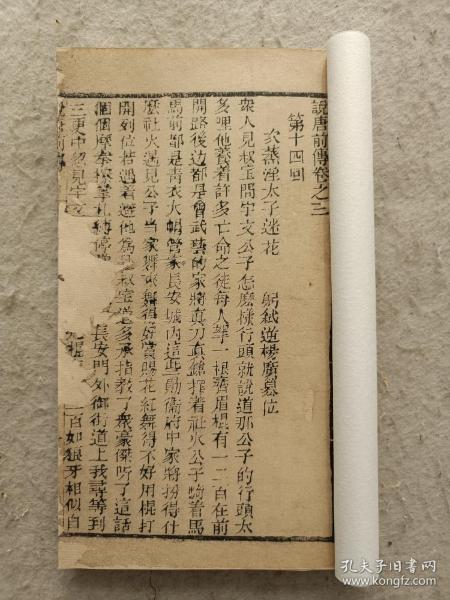 說唐前傳卷之三
第十四回
烝淫太子迷花 躬弒逆楊廣篡位
衆人見叔宝問宇文公子怎麽樣行頭就說道那公子的行頭太
多哩他養着許多亡命之徒每人拿一根齊眉棍有一二百在前
開路後边都是會武藝的家將真刀真鎗擺着社火公子騎着馬
馬前都是青衣大帽管家長安城內這些勳衛府中家將扮得什
麽社火遇見公子當家舞來舞得好賞賜花紅舞得不好用棍打
開列位若遇着避他爲是叔宝道多承指教了衆豪傑聽了這話
個個摩拳擦掌扎縛停 長安門外御街道上我尋等到
三更中 見宇文 一百如狼牙相似自
孔夫子旧书网
www.kongfz.com